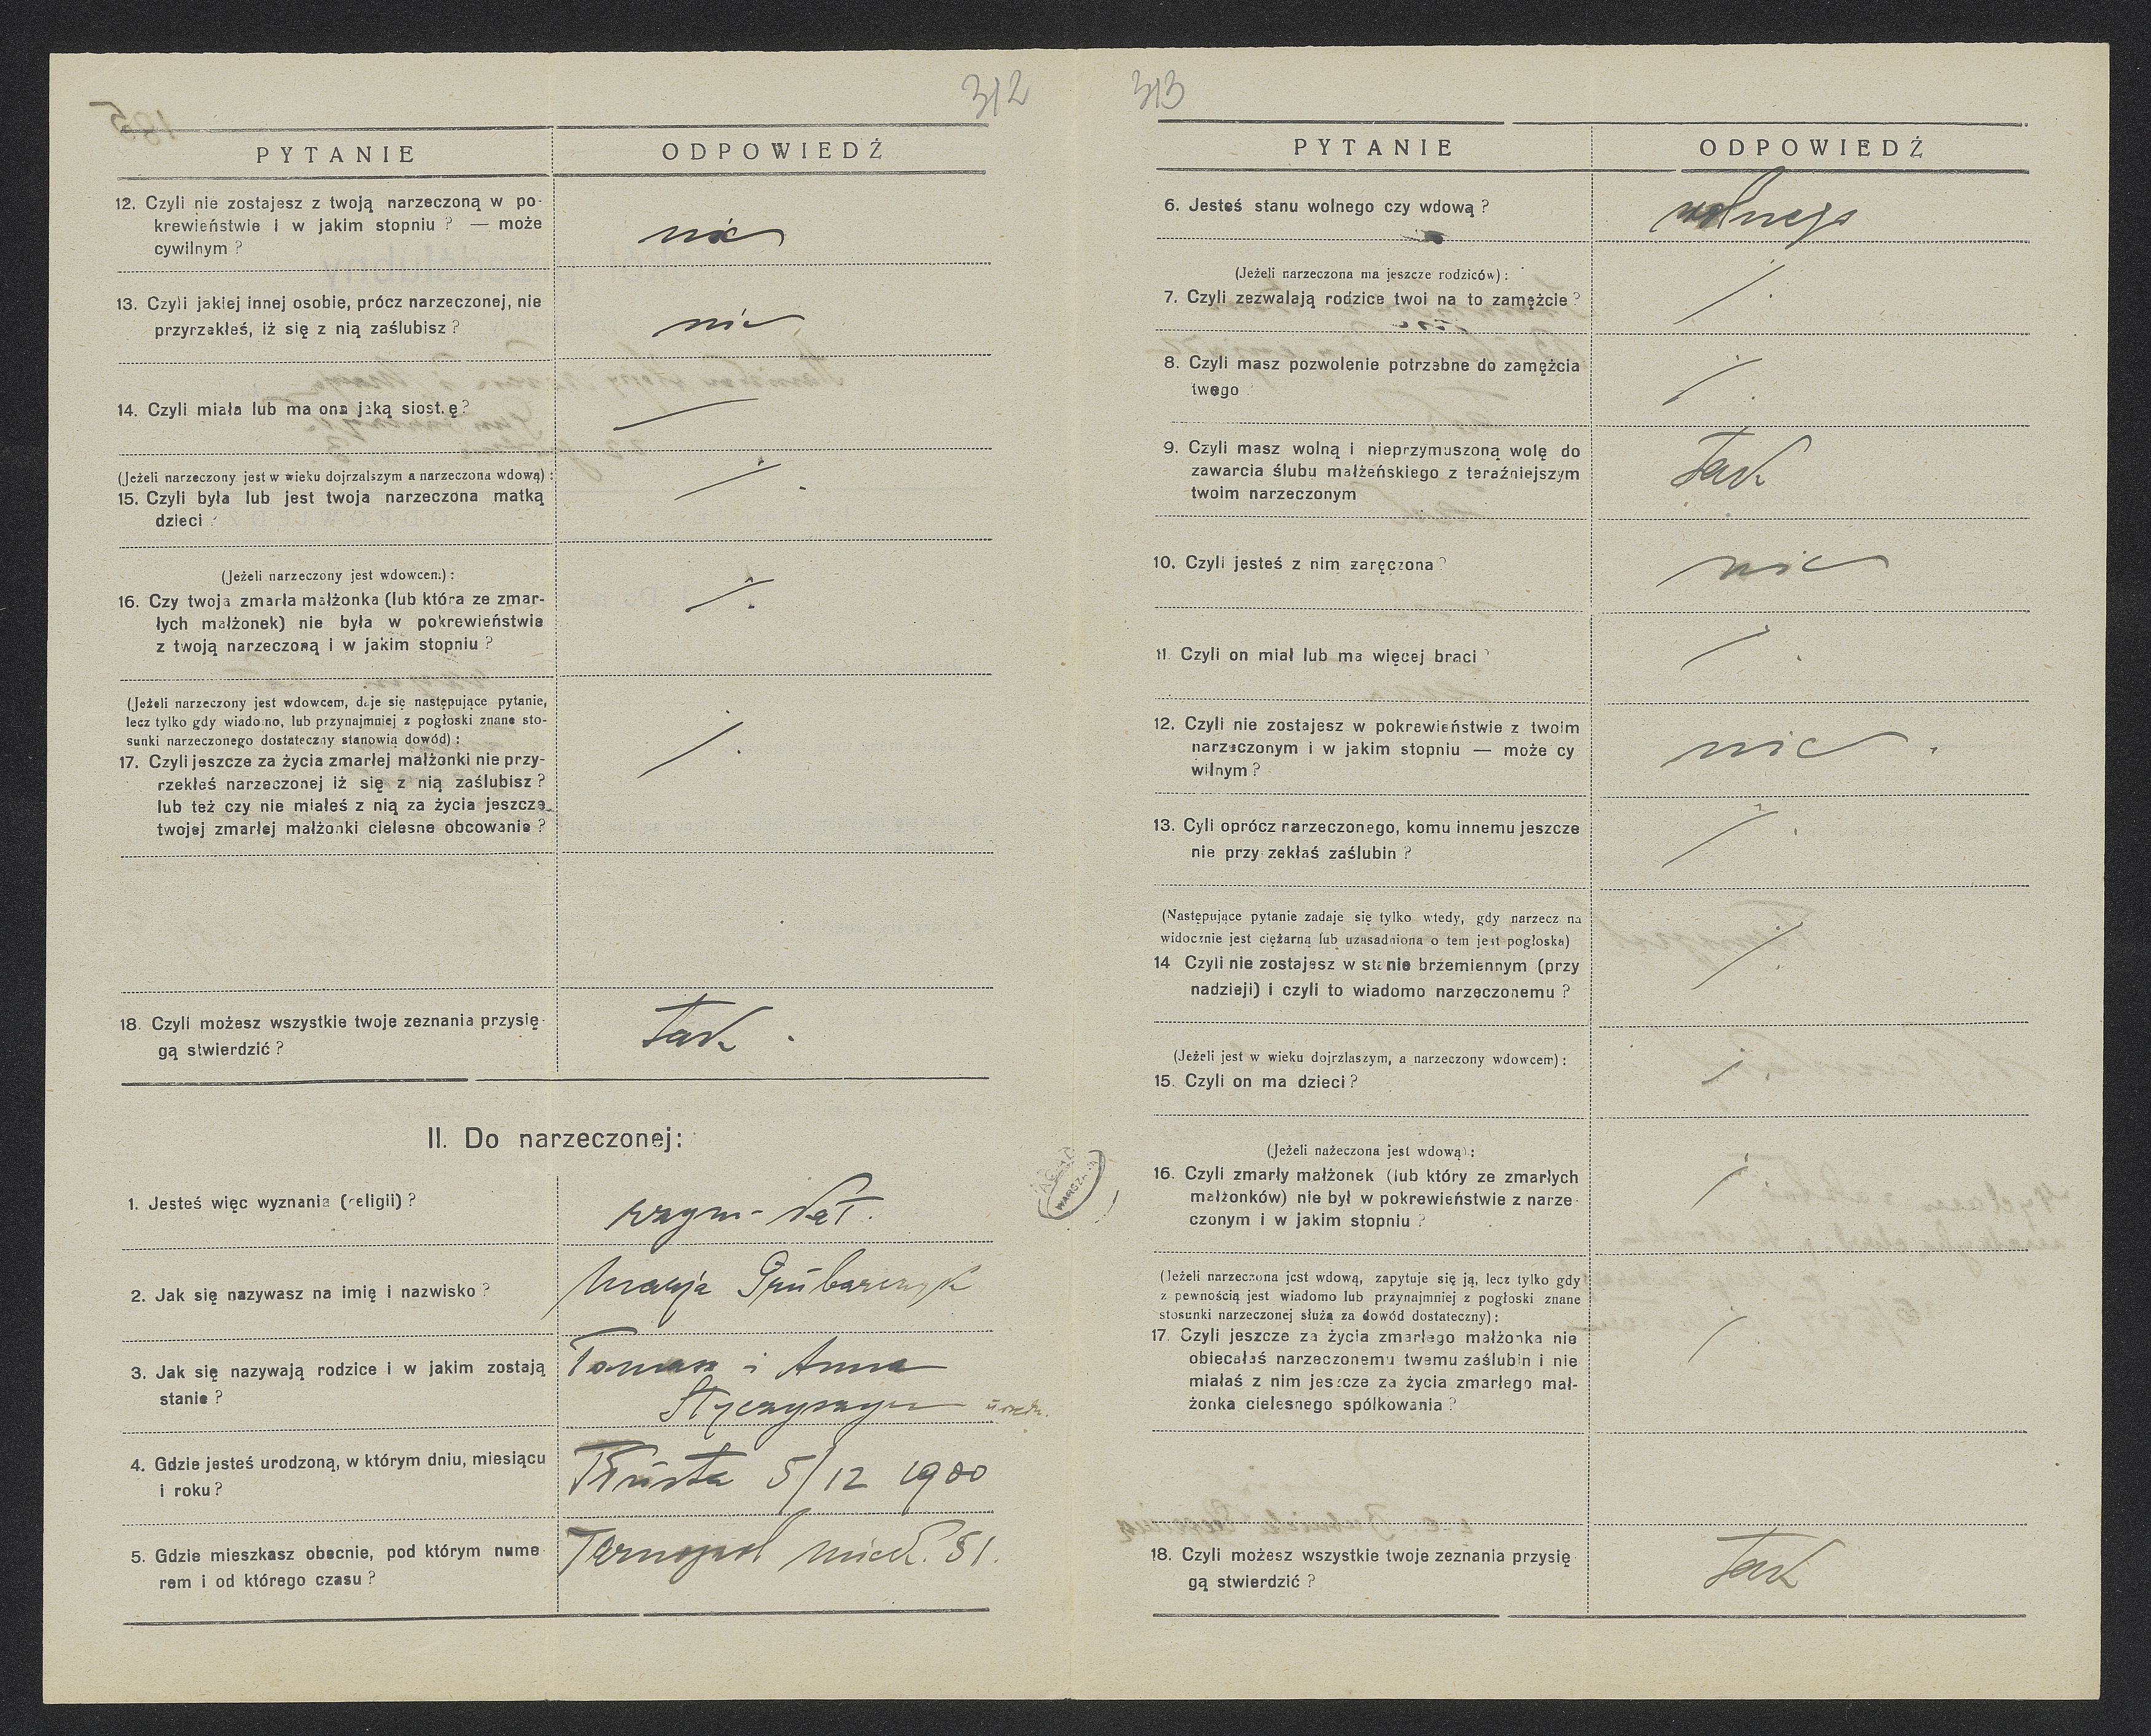 312
PYTANIE
ODPOWIEDŹ
12. Czyli nie zostajesz z twoją narzeczoną w po-
krewieństwie i w jakim stopniu ? — może
cywilnym ?
nie
13. Czyli jakiej innej osobie, prócz narzeczonej, nie
przyrzekłeś, iż się z nią zaślubisz ?
nie
14. Czyli miała lub ma ona jaką siost.ę?
(Jeżeli narzeczony jest w wieku dojrzalszym a narzeczona wdową) :
15. Czyli była lub jest twoja narzeczona matką
dzieci ?
(Jeżeli narzeczony jest wdowcem) :
16. Czy twoja zmarła małżonka (lub która ze zmar-
łych małżonek) nie była w pokrewieństwie
z twoją narzeczoną i w jakim stopniu ?
(Jeżeli narzeczony jest wdowcem, daje się następujące pytanie,
lecz tylko gdy wiadomo, lub przynajmniej z pogłoski znane sto-
sunki narzeczonego dostateczny stanowią dowód) :
17. Czyli jeszcze za życia zmarłej małżonki nie przy-
rzekłeś narzeczonej iż się z nią zaślubisz ?
lub też czy nie miałeś z nią za życia jeszcze
twojej zmarłej małżonki cielesne obcowanie ?
18. Czyli możesz wszystkie twoje zeznania przysię-
gą stwierdzić ?
tak .
II. Do narzeczonej:
1. Jesteś więc wyznania (religii) ?
rzym-kat.
2. Jak się nazywasz na imię i nazwisko ?
Marja Grubarczyk
3. Jak się nazywają rodzice i w jakim zostają
stanie ?
Tomasz i Anna
4. Gdzie jesteś urodzoną, w którym dniu, miesiącu
i roku ?
Tłusta 5/12 1900
5. Gdzie mieszkasz obecnie, pod którym nume-
rem i od którego czasu ?
Tarnopol Mick. 51.
WARSZAWA
313
PYTANIE
ODPOWIEDŹ
6. Jesteś stanu wolnego czy wdową ?
wolnego
(Jeżeli narzeczona ma jeszcze rodziców) :
7. Czyli zezwalają rodzice twoi na to zamężcie ?
8. Czyli masz pozwolenie potrzebne do zamężcia
twego
9. Czyli masz wolną i nieprzymuszoną wolę do
zawarcia ślubu małżeńskiego z teraźniejszym
twoim narzeczonym
tak
10. Czyli jesteś z nim zaręczona ?
nie
11. Czyli on miał lub ma więcej braci ?
12. Czyli nie zostajesz w pokrewieństwie z twoim
narzeczonym i w jakim stopniu — może cy
wilnym ?
nie .
13. Cyli oprócz narzeczonego, komu innemu jeszcze
nie przy zekłaś zaślubin ?
(Następujące pytanie zadaje się tylko wtedy, gdy narzecz na
widocznie jest ciężarną lub uzasadniona o tem jest pogłoska)
14 Czyli nie zostajesz w stanie brzemiennym (przy
nadzieji) i czyli to wiadomo narzeczonemu ?
(Jeżeli jest w wieku dojrzlaszym, a narzeczony wdowcem) :
15. Czyli on ma dzieci ?
(Jeżeli nażeczona jest wdową) :
16. Czyli zmarły małżonek (lub który ze zmarłych
małżonków) nie był w pokrewieństwie z narze-
czonym i w jakim stopniu ?
(Jeżeli narzeczona jest wdową, zapytuje się ją, lecz tylko gdy
z pewnością jest wiadomo lub przynajmniej z pogłoski znane
stosunki narzeczonej służą za dowód dostateczny) :
17. Czyli jeszcze za życia zmarłego małżonka nie
obiecałaś narzeczonemu twemu zaślubin i nie
miałaś z nim jeszcze za życia zmarłego mał-
żonka cielesnego spółkowania ?
18. Czyli możesz wszystkie twoje zeznania przysię
gą stwierdzić ?
tak